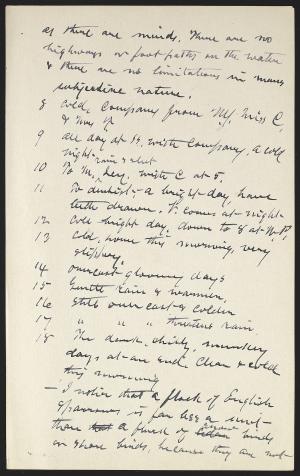 as there are minds. There are no
highways or foot paths on the water
& there are no limitations in mans
subjective nature.
8 Cold, Company from N.Y. Miss C.
& 
9 All day at H. with Company, a cold
night - rain & sleet
10 To M, with C at 5.
11 To dentist - a bright day, have
teeth drawn. comes at night.
12 Cold bright day, down to 8 at N.P.
13 Cold, home this morning, very
slippery,
14 overcast gloomy days
15 Gentle rain & warmer,
16 Still overcast & colder
17 " " " threatens rain.
18 The dark, chilly, smoky
days at an end. Clear & cold
this morning
— I notice that a flock of English
sparrows is far less a unit
than a flock of snow birds
or shore birds, because they are not